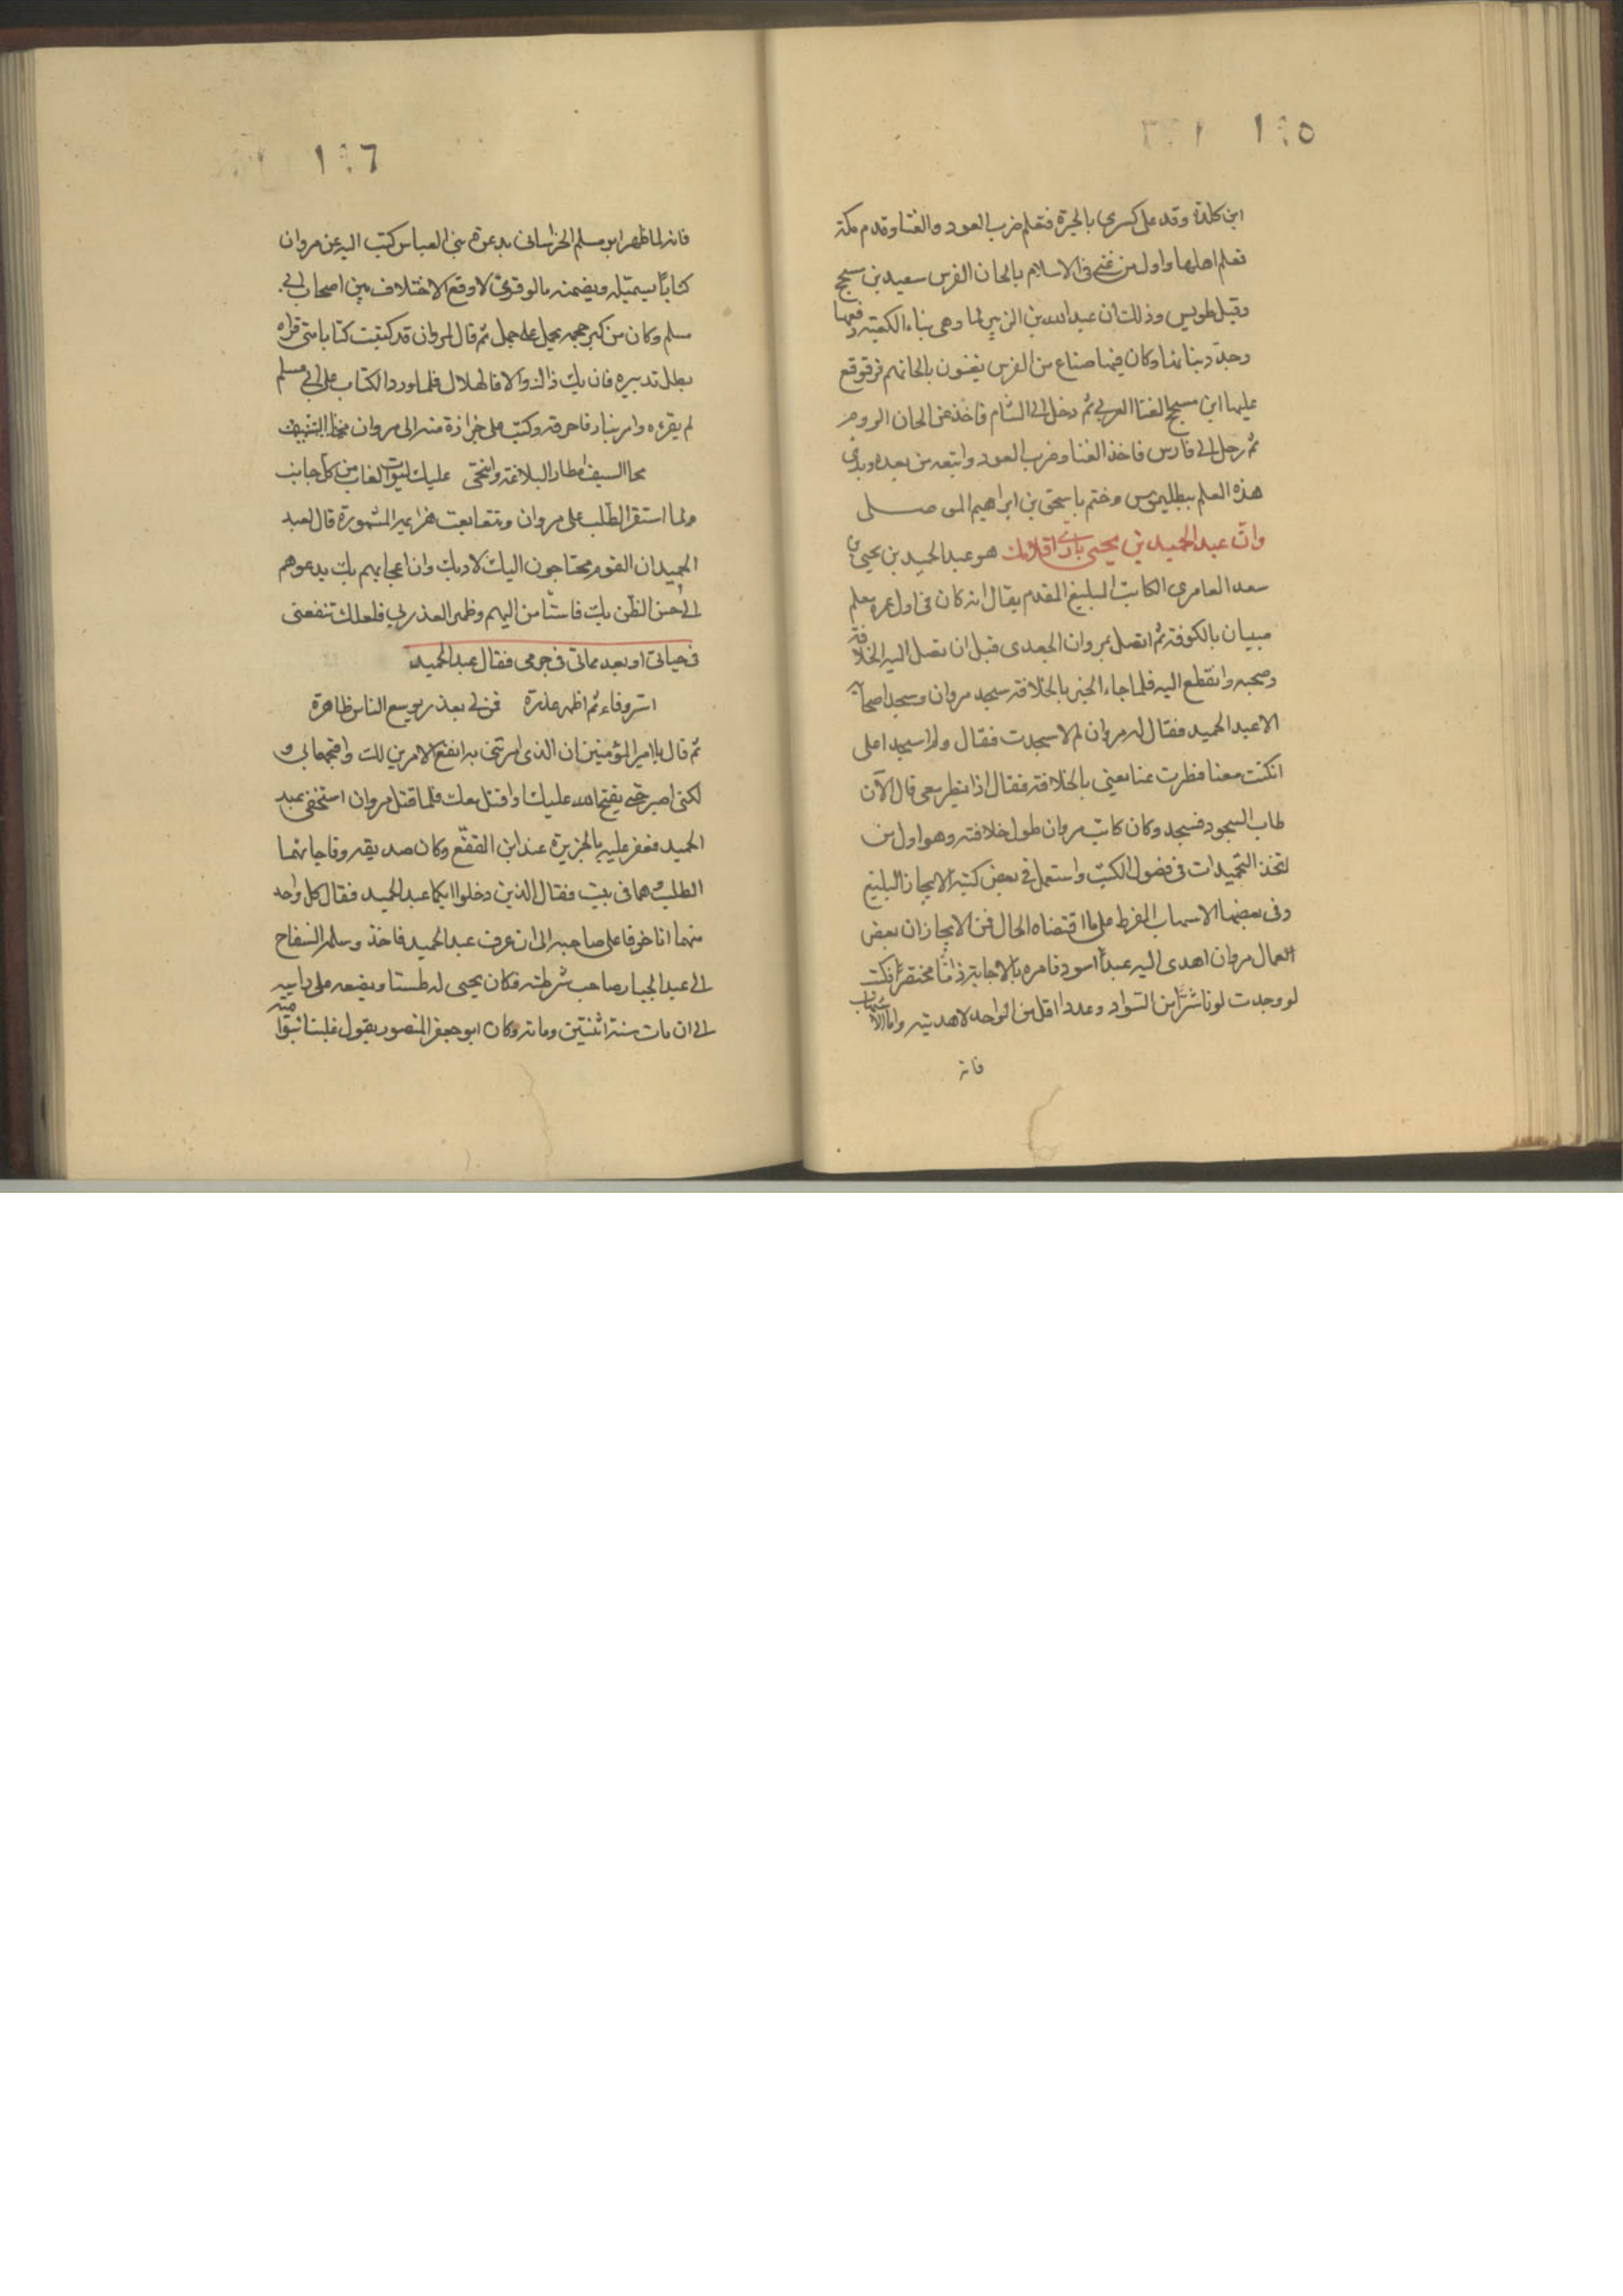 ١٠٥
ابن كلدة وفد على كسرى بالحيرة فتعلم ضرب العود والغنا وقدم مكة
فعلم اهلها واول من غنى في الاسلام بالحان الفرس سعيد بن مسجح
وقيل طويس وذلك ان عبد الله بن الزبير لما وهى بناء الكعبة رفعها
وجدد بنائها وكان فيها صناع من الفرس يغنون بالحانهم فوقع
عليها ابن مسجح الغنا العربي ثم دخل الى الشام فاخذ عن الحان الروم
ثم رحل الى فارس فاخذ الغنا وضرب العود واتبعه من بعده وبدي
هذه العلم ببطليموس وختم باسحق بن ابراهيم الموصلي
وان عبد الحميد بن يحيى باري اقلامك هو عبد الحميد بن يحيى بن
سعد العامري الكاتب البليغ المقدم يقال انه كان في اول عمره يعلم
صبيان بالكوفة ثم اتصل بمروان الجعدى قبل ان تصل اليه الخلافة
وصحبه وانقطع اليه فلما جاء الخبر بالخلافة سجد مروان وسجد اصحابه
الا عبد الحميد فقال له مروان لم لا سجدت فقال ولم اسجد اعلى
ان كنت معنا فطرت عنا يعني بالخلافة فقال اذا تطير معى قال الآن
طاب السجود فسجد وكان كاتب مروان طول خلافته وهو اول من
اتخذ التحميدات في فصول الكتب واستعمل في بعض كتبه الايجاز البليغ
وفى بعضها الاسهاب المفرط على ما اقتضاه الحال فمن الايجاز ان بعض
العمال مروان اهدى اليه عبداً اسود فامره بالاجابة ذامّا مختصراً فكتب
لو وجدت لونا شرّا من السواد وعددا اقل من الواحد لاهديته واما الاسهاب
فانه
١٠٦
فانه لما ظهر ابو مسلم الخراسانى بدعوة بني العباس كتب اليه عن مروان
كتاباً يستميله ويضمنه ما لو قرئ لاوقع الاختلاف بين اصحاب ابي
مسلم وكان من كبر حجمه يحمل على جمل ثم قال لمروان قد كتبت كتابا متى قراه
بطل تدبيره فان يك ذالك والا فالهلال فلما ورد الكتاب على ابي مسلم
لم يقرءه وامر بنار فاحرقه وكتب على جزازة منه الى مروان
محا السيف اسطار البلاغة وانتحى عليك ليوث الغاب من كل جانب
ولما استقر الطلب على مروان وتتعابعت هزايمه المشهورة قال لعبد
الحميد ان القوم محتاجون اليك لادبك وان اعجابهم بك يدعوهم
الى حسن الظن بك فاستأمن اليهم وظهر الغدر بي فلعلك تنفعنى
في حياتى او بعد مماتى في حرمى فقال عبد الحميد
اسر وفاء ثم اظهر غدرة فمن لي بعذر يوسع الناس ظاهرة
ثم قال يا امير المؤمنين ان الذى امرتنى به انفع الامرين لك واقبحهما بي و
لكنى اصبر حتى يفتح الله عليك او اقتل معك فلما قتل مروان استخفى عبد
الحميد فغمز عليه بالجزيرة عند ابن المقفّع وكان صديقه وفاجاهما
الطلب وهما في بيت فقال الذين دخلوا ايكما عبد الحميد فقال كل واحد
منهما انا خوفا على صاحبه الى ان عرف عبد الحميد فاخذ وسلمه السفاح
الى عبد الجبار صاحب شرطته فكان يحمى له طستا ويضعه على راسه
الى ان مات سنة اثنتين ومائة وكان ابو جعفر المنصور يقول غلبنا بنوا امية